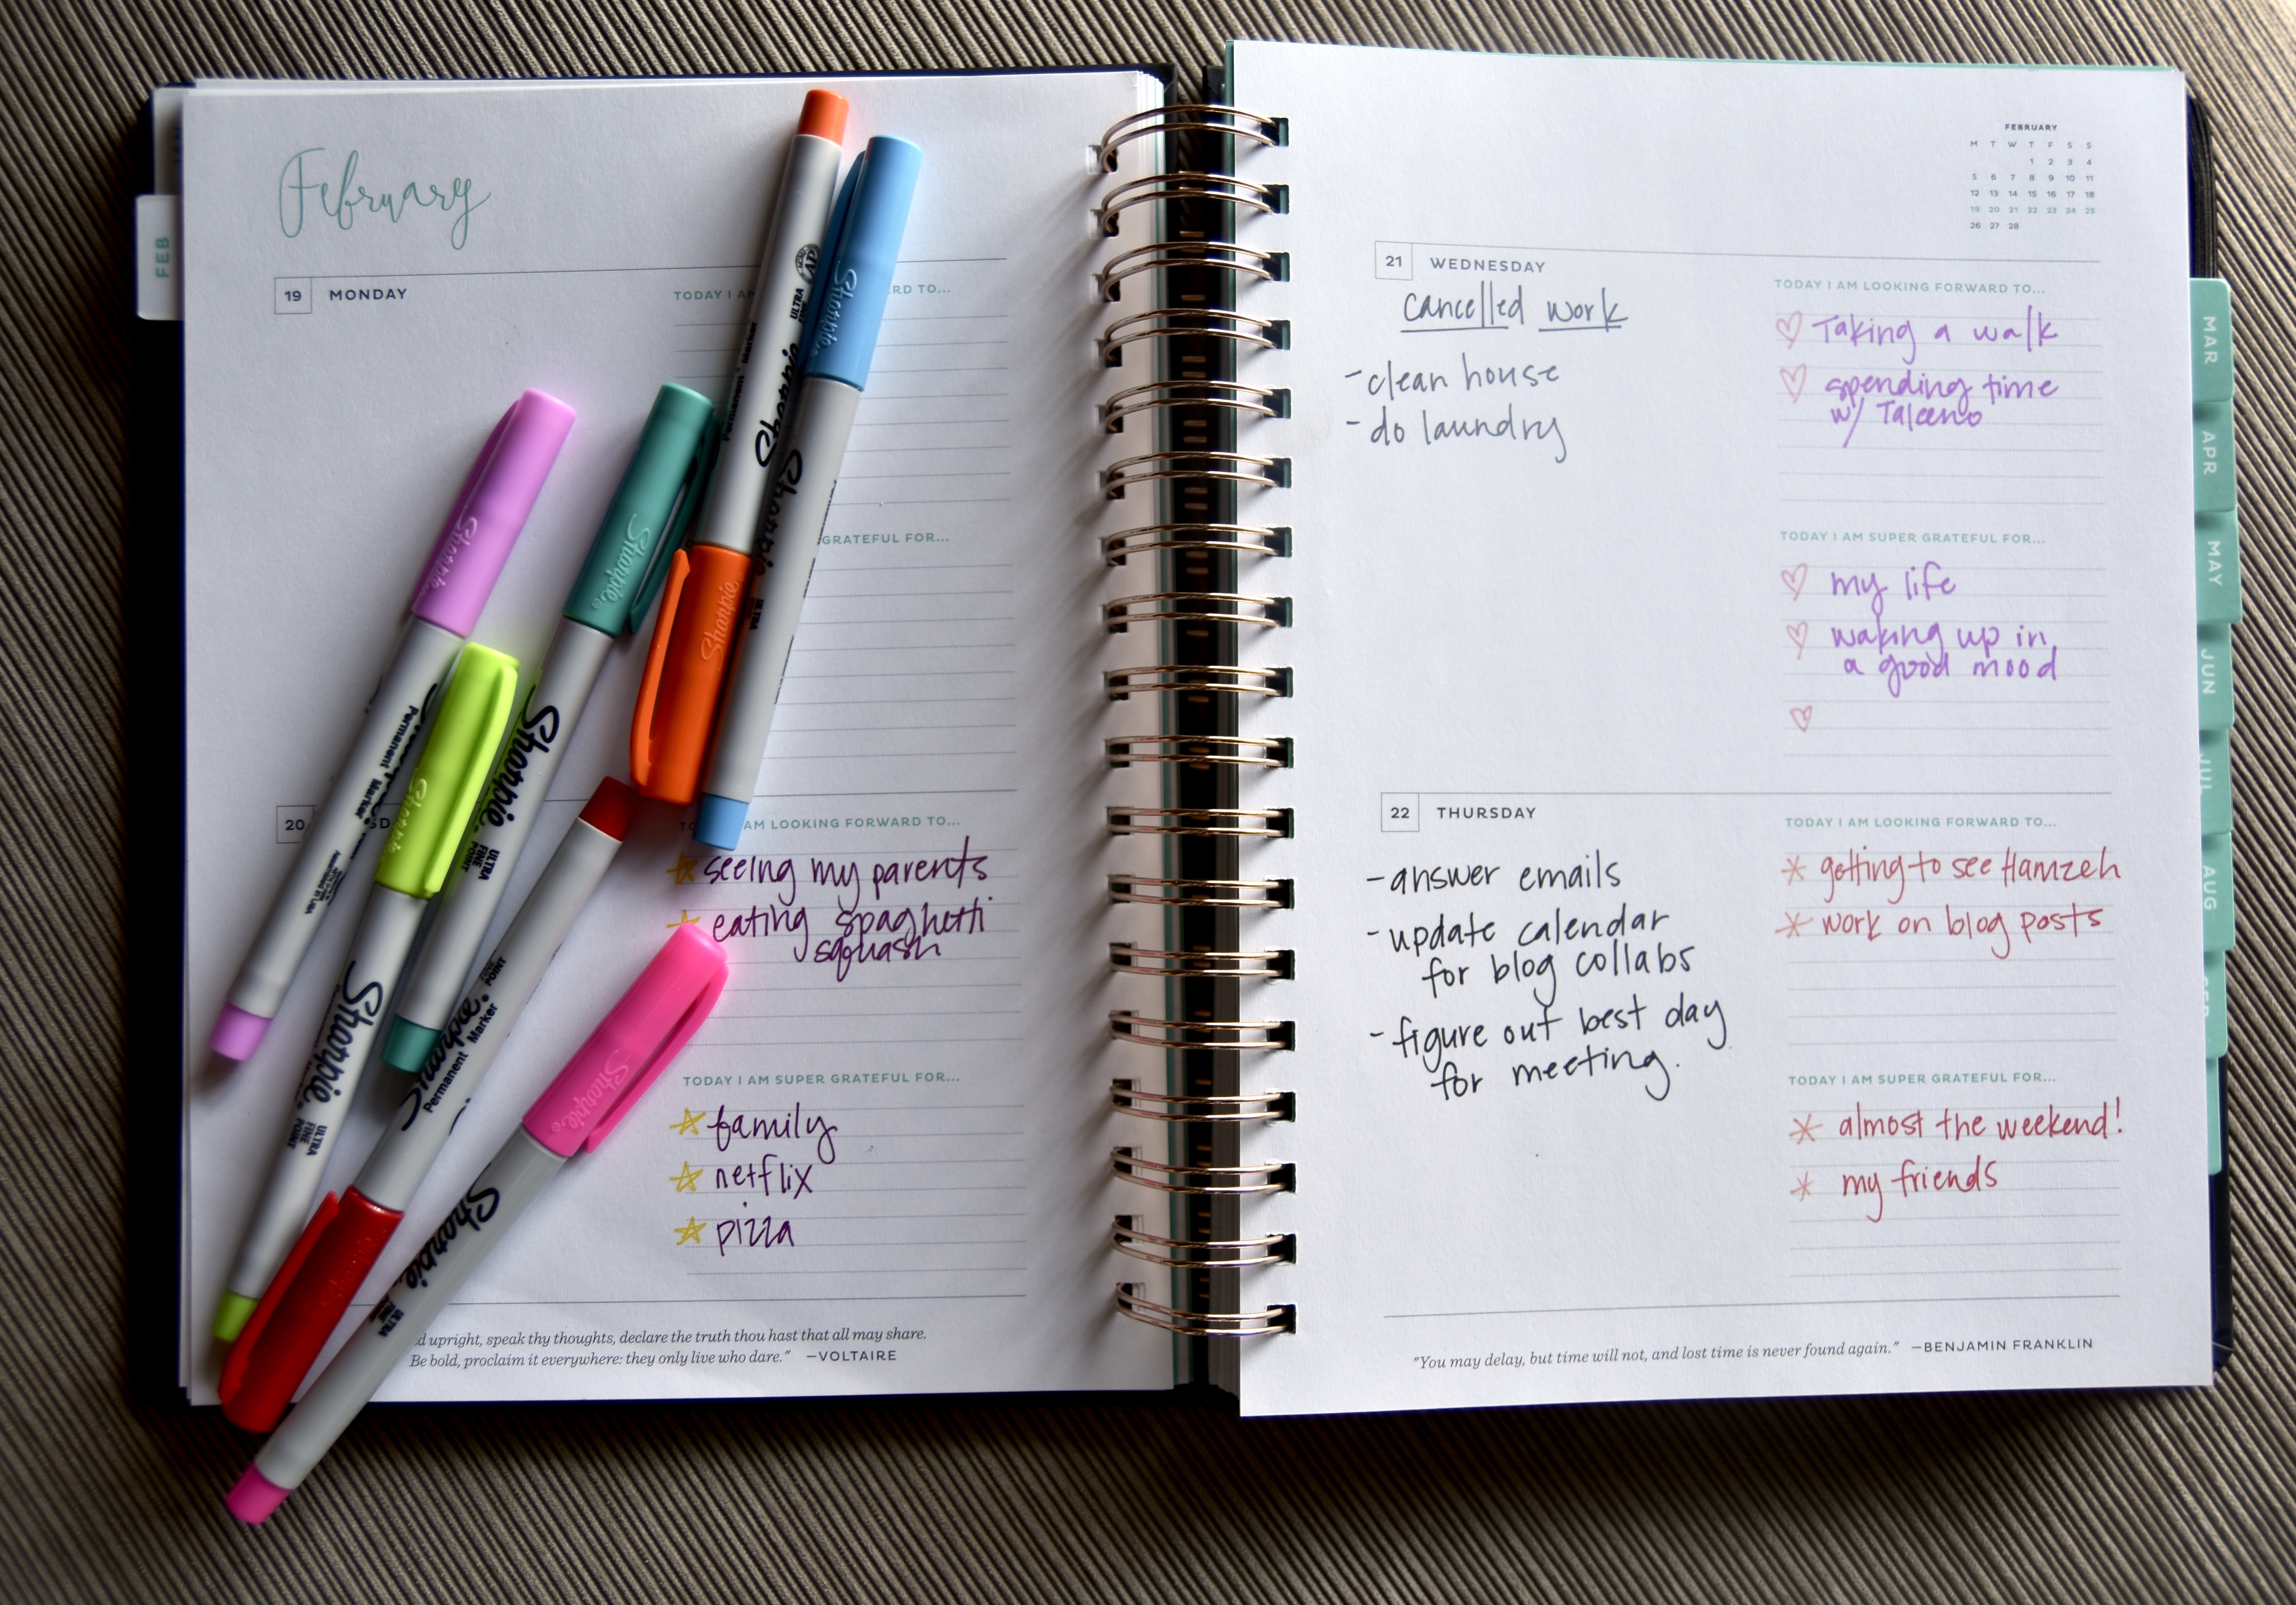 February
FEB
19 MONDAY
TODAY I A RD TO...
GRATEFUL FOR...
20
AM LOOKING FORWARD TO...
seeing my parents
eating spaghetti
squash
TODAY I AM SUPER GRATEFUL FOR...
family
netflix
pizza
upright, speak thy thoughts, declare the truth thou hast that all may share.
Be bold, proclaim it everywhere: they only live who dare." —VOLTAIRE
Sharpie
Permanent Marker
ULTRA
FINE
POINT
Sharpie
Sharpie
ULTRA
FINE
POINT
Sharpie
Sharpie
ULTRA
FINE
POINT
Permanent Marker
FINE
POINT
Sharpie
Sharpie
ULTRA
Sharpie
Sharpie
Permanent Marker
ULTRA
AP
Sharpie
Sharpie
ULTRA
FEBRUARY
M T W T F S S
1 2 3 4
5 6 7 8 9 10 11
12 13 14 15 16 17 18
19 20 21 22 23 24 25
26 27 28
21 WEDNESDAY
cancelled work
-clean house
-do laundry
TODAY I AM LOOKING FORWARD TO...
Taking a walk
spending time
w/ Taleeno
TODAY I AM SUPER GRATEFUL FOR...
my life
waking up in
a good mood
22 THURSDAY
-answer emails
-update calendar
for blog collabs
-figure out best day
for meeting.
TODAY I AM LOOKING FORWARD TO...
getting to see Hamzeh
work on blog posts
TODAY I AM SUPER GRATEFUL FOR...
almost the weekend!
my friends
"You may delay, but time will not, and lost time is never found again." —BENJAMIN FRANKLIN
MAR
APR
MAY
JUN
JUL
AUG
SEP